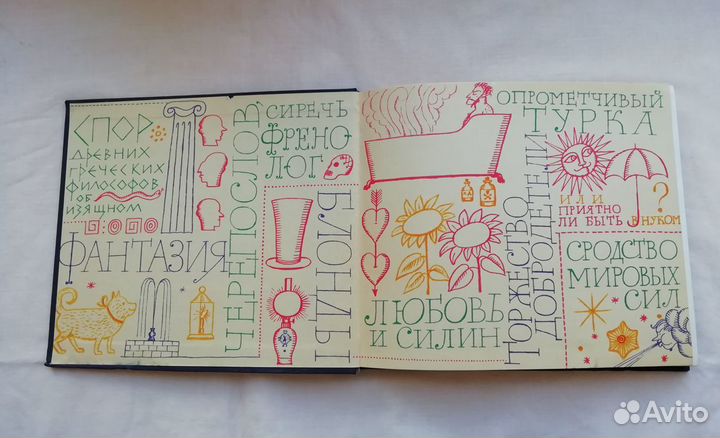 СПОР
ДРЕВНИХ
ГРЕЧЕСКИХ
ФИЛОСОФОВ
ОБ
ИЗЯЩНОМ
ФАНТАЗИЯ
ЧЕРЕПОСЛОВ,
СИРЕЧЬ
ФРЕНО
ЛОГ
БЛОНДЫ
ЛЮБОВЬ
И СИЛИН
ТОРЖЕСТВО
ДОБРОДЕТЕЛИ
ОПРОМЕТЧИВЫЙ
ТУРКА
ИЛИ
ПРИЯТНО
ЛИ БЫТЬ
ВНУКОМ
?
СРОДСТВО
МИРОВЫХ
СИЛ
Avito